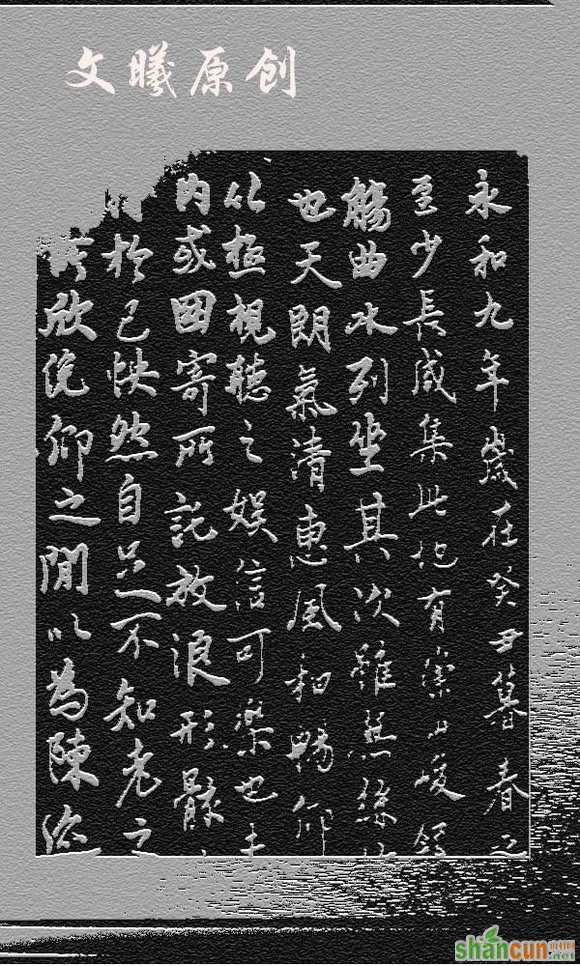 文曦原创
永和九年歲在癸丑暮春之
至少長咸集此地有崇山峻領
觴曲水列坐其次雖無絲竹
也天朗氣清惠風和暢仰
以極視聽之娛信可樂也夫
內或因寄所託放浪形骸
於己怏然自足不知老之
欣俛仰之閒以為陳迹
shancun
.net